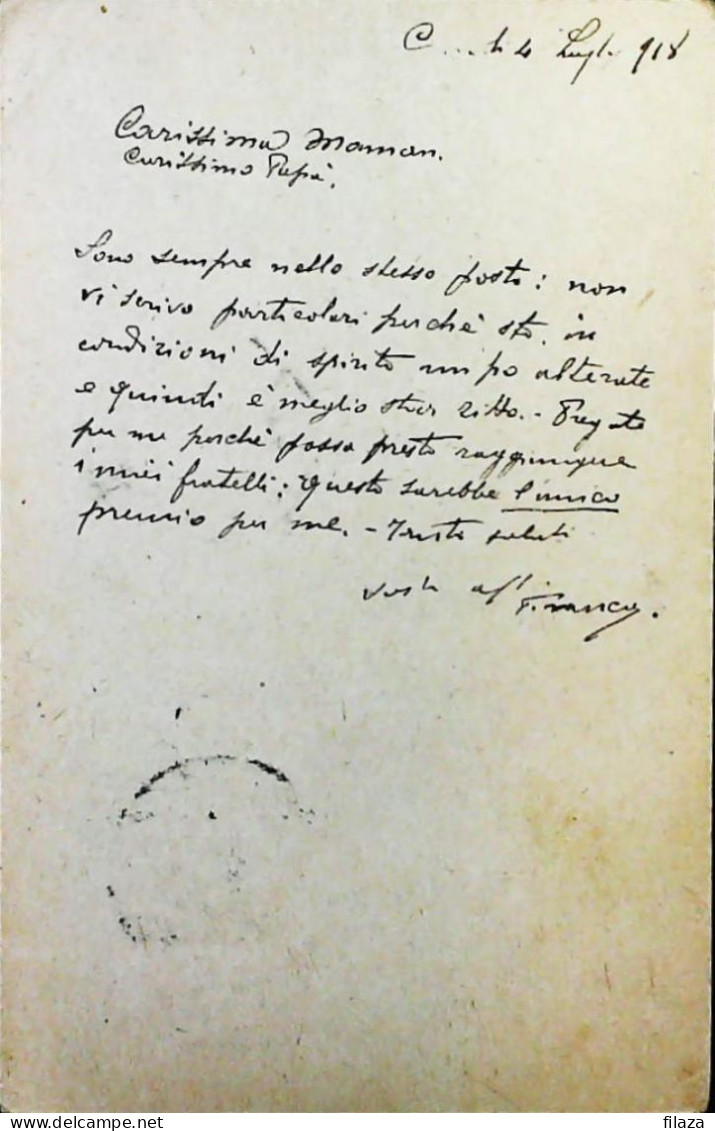 C....li 4 Luglio 918
Carissima Maman.
Carissimo Papà.
Sono sempre nello stesso posto: non
vi scrivo particolari perchè sto in
condizioni di spirito un po alterate
e quindi è meglio star zitto. - Pregate
per me perchè possa presto raggiungere
i miei fratelli; questo sarebbe l'unico
premio per me. - Tristi saluti
vostro aff.
Franco.
filaza